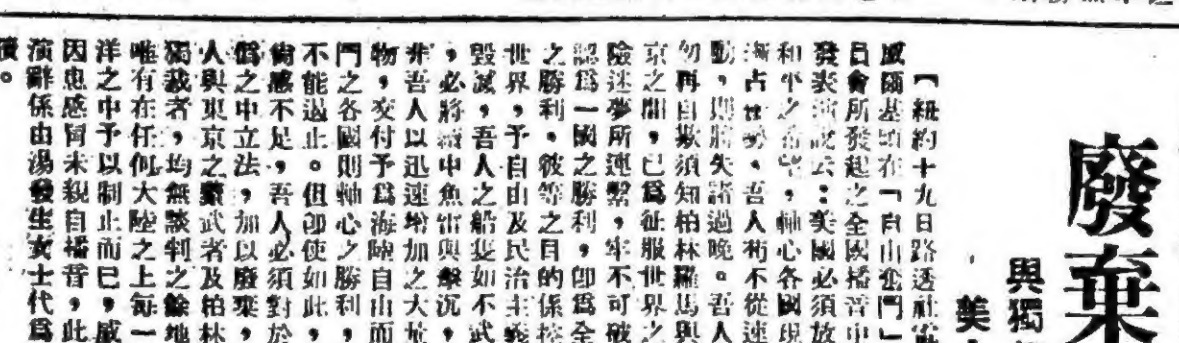 廢棄
與獨
美
【紐約十九日路透社電
威爾基頃在「自由奮鬥」
員會所發起之全國播音中
發表演說云：美國必須放
和平之希望，軸心各國現
漸占世勢。吾人苟不從速
動，則將失諸過晚。吾人
勿再自欺須知柏林羅馬與
京之間，已爲征服世界之
險迷夢所連繫，牢不可破
認爲一國之勝利，卽爲全
之勝利。彼等之目的係控
世界，予自由及民治主義
毀滅，吾人之船隻如不武
，必將續中魚雷與擊沉，
非吾人以迅速增加之大量
物，交付予爲海陸自由而
門之各國則軸心之勝利，
不能遏止。但卽使如此，
尙感不足，吾人必須對於
僞之中立法，加以廢棄，
人與東京之黷武者及柏林
獨裁者，均無談判之餘地
唯有在任何大陸之上每一
洋之中予以制止而已，威
因患感冒未親自播音，此
演辭係由湯發生女士代爲
讀。